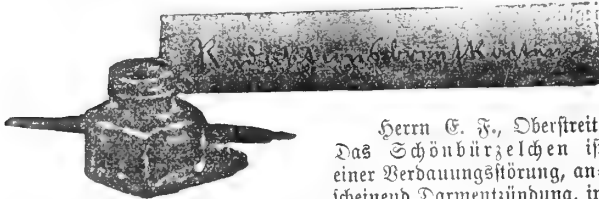 Herrn E. F., Oberstreit
Das Schönbürzelchen is
einer Verdauungsstörung, an-
scheinend Darmentzündung, in